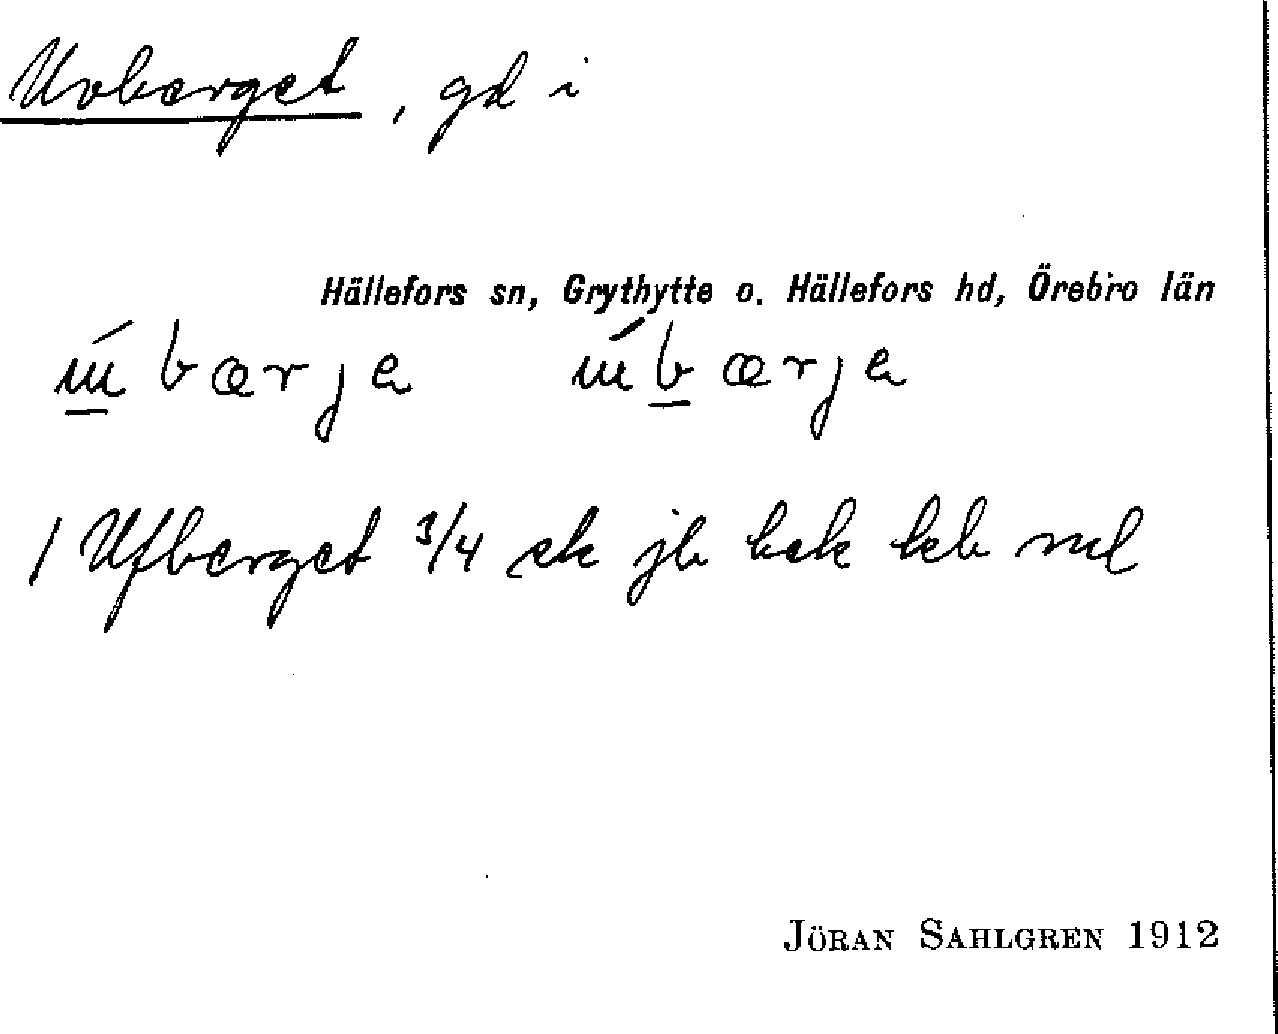 Uvberget, gd i
Hällefors sn, Grythytte o. Hällefors hd, Örebro län
bærja bærja
1 Ufberget 3/4 sk jb
JÖRAN SAHLGREN 1912